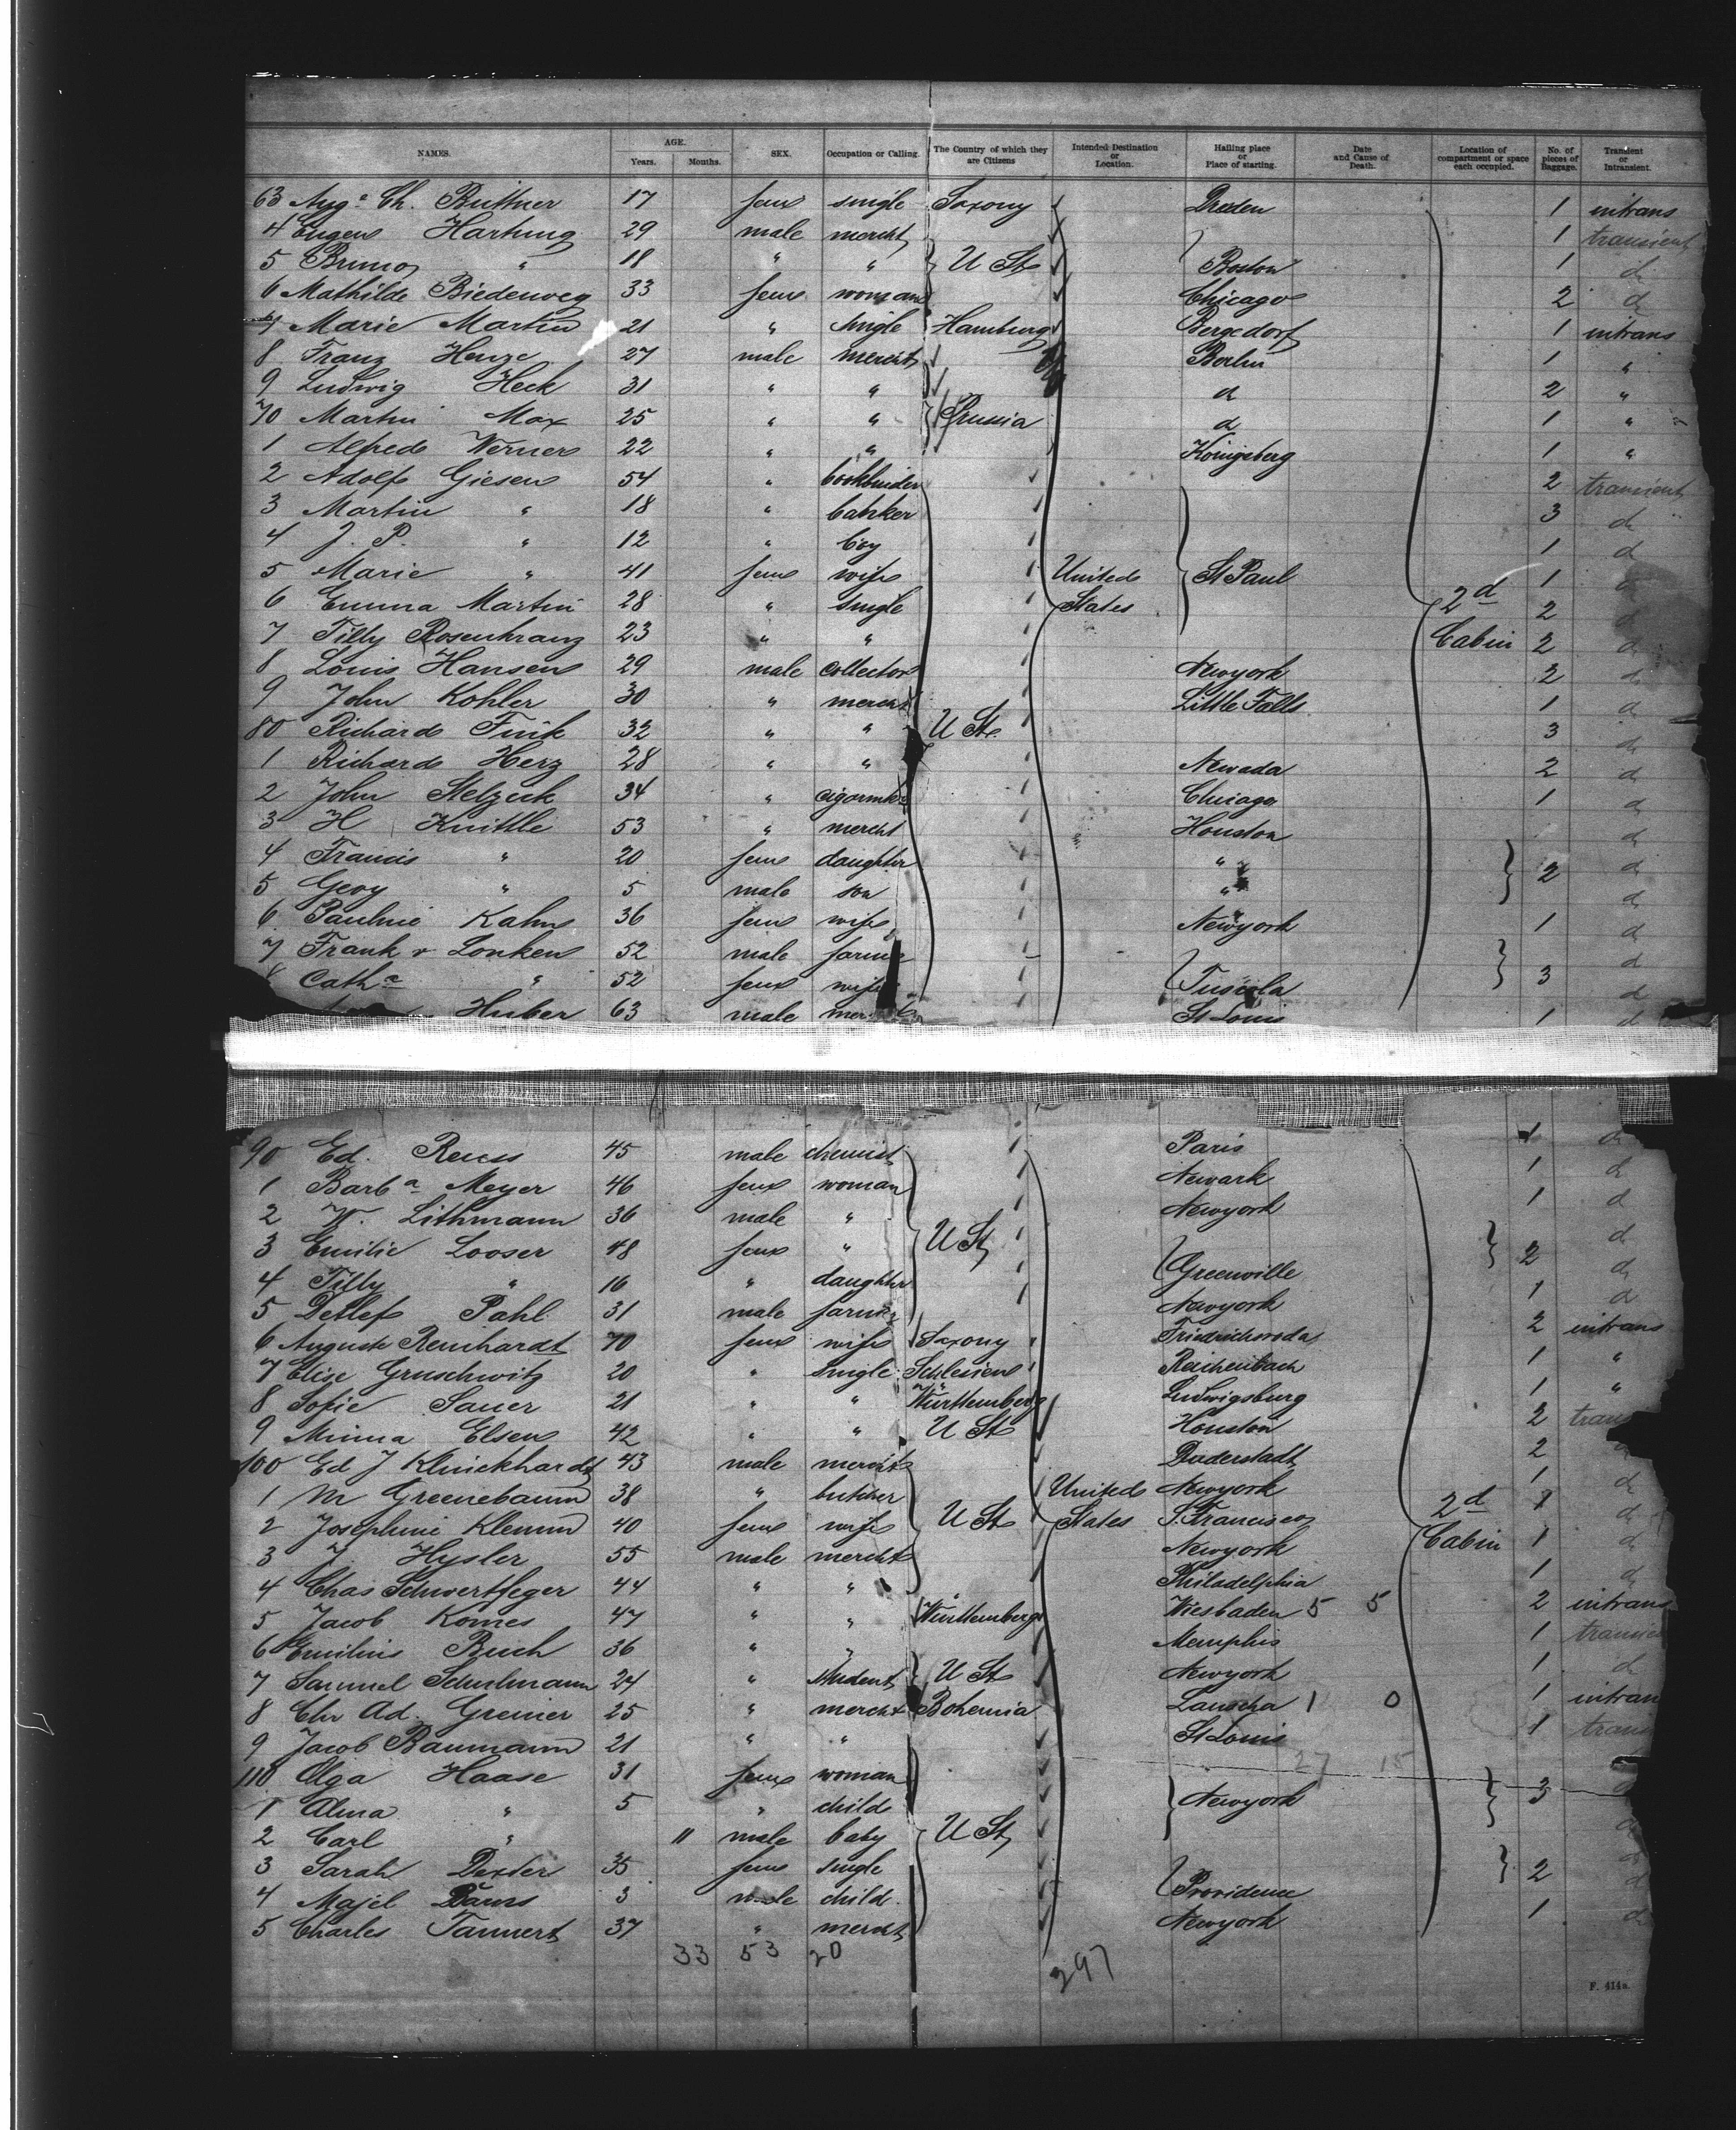 NAMES. AGE. Years. Months. SEX. Occupation or Calling. The Country of which they are Citizens Intended Destination or Location. Hailing place or Place of starting. Date and Cause of Death. Location of compartment or space each occupied. No. of pieces of Baggage. Transient or Intransient.
63 Aug.e Ch. Büttner 17 fem single Saxony Dresden 1 intrans
4 Eugen Hartung 29 male mercht 1 transient
5 Bruno " 18 " " U St. Boston 1 d
6 Mathilde Biedenweg 33 fem woman Chicago 2 d
7 Marie Martin 21 " single Hamburg Bergedorf 1 intrans
8 Franz Henze 27 male mercht Berlin 1 "
9 Ludwig Heck 31 " " d 2 "
70 Martin Max 25 " " Prussia d 1 "
1 Alfred Werner 22 " " Königsberg 1 "
2 Adolf Giesen 54 " bookbinder 2 transient
3 Martin " 18 " banker 3 d
4 J. P. " 12 " boy 1 d
5 Marie " 41 fem wife United St Paul 1 d
6 Emma Martin 28 " single States 2d 2 d
7 Tilly Rosenkranz 23 " " Cabin 2 d
8 Louis Hansen 29 male collector Newyork 2 d
9 John Kohler 30 " mercht Little Falls 1 d
80 Richard Fink 32 " " U St. 3 d
1 Richard Herz 28 " " Nevada 2 d
2 John Stelzeck 34 " cigarmkr Chicago 1 d
3 H Knittle 53 " mercht Houston d
4 Francis " 20 fem daughter " 2 d
5 Gevy " 5 male son " d
6 Pauline Kahn 36 fem wife Newyork 1 d
7 Frank v Lonken 52 male farmer d
8 Cath.a " 52 fem wife Tuscola 3 d
Huber 63 male mer St Louis 1 d
90 Ed. Reuss 45 male chemist Paris 1 d
1 Barb.a Meyer 46 fem woman Newark 1 d
2 W. Lithmann 36 male " Newyork 1 d
3 Emilie Looser 48 fem " U St. 2 d
4 Tilly " 16 " daughter Greenville d
5 Detlef Pahl 31 male farmer Newyork 1 d
6 Auguste Reinhardt 70 fem wife Saxony Friedrichroda 2 intrans
7 Elise Gruschwitz 20 " single Schlesien Reichenbach 1 "
8 Sofie Sauer 21 " " Württemberg Ludwigsburg 1 "
9 Minna Elsen 42 " " U St Houston 2 trans
100 Ed J Klinckhardt 43 male mercht Duderstadt 2 d
1 M Greenebaum 38 " butcher United Newyork 1 d
2 Josephine Klemm 40 fem wife U St States S. Francisco 2d 1 d
3 J. Hysler 55 male mercht Newyork Cabin 1 d
4 Chas Schwertfeger 44 " " Philadelphia 1 d
5 Jacob Komes 47 " " Württemberg Wiesbaden 5 5 2 intrans
6 Emilius Buch 36 " " Memphis 1 transien
7 Samuel Schulmann 24 " student U St Newyork 1 d
8 Chr Ad. Greiner 25 " mercht Bohemia Lauscha 1 0 1 intran
9 Jacob Baumann 21 " " St Louis 1 trans
27 15
110 Olga Haase 31 fem woman 3 d
1 Alma " 5 " child Newyork
2 Carl " 11 male baby U St. d
3 Sarah Dexter 35 fem single 2 d
4 Majel 3 male child Providence d
5 Charles Tannert 37 " mercht Newyork 1 d
33 53 20 297
F. 414a.